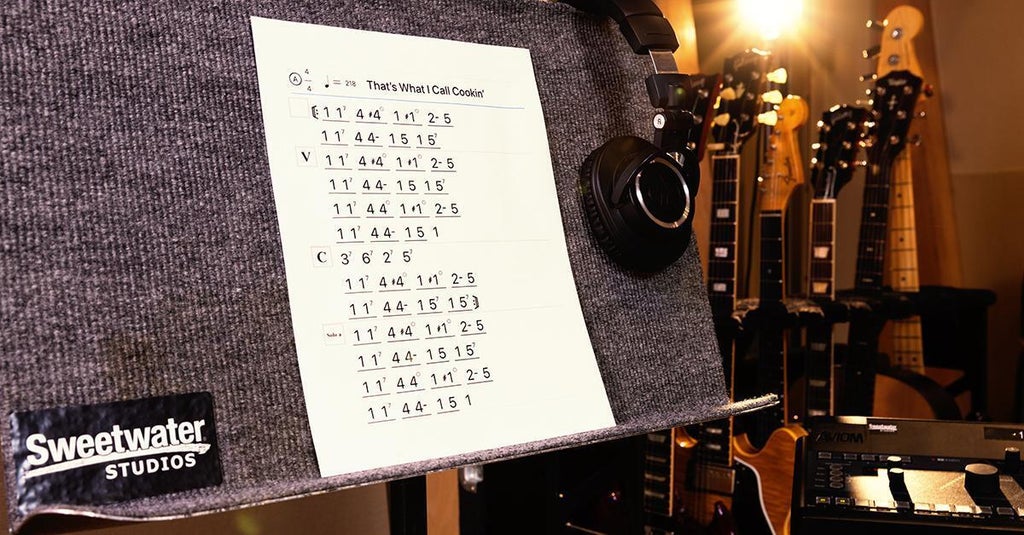 A 4/4 ♩= 218 That's What I Call Cookin'
1 1⁷ 4 #4° 1 #1° 2- 5
1 1⁷ 4 4- 1 5 1 5⁷
V 1 1⁷ 4 #4° 1 #1° 2- 5
1 1⁷ 4 4- 1 5 1 5⁷
1 1⁷ 4 4° 1 #1° 2- 5
1 1⁷ 4 4- 1 5 1
C 3⁷ 6⁷ 2⁷ 5⁷
1 1⁷ 4 #4° 1 #1° 2- 5
1 1⁷ 4 4- 1 5⁷ 1 5⁷
1 1⁷ 4 #4° 1 #1° 2- 5
1 1⁷ 4 4- 1 5 1 5⁷
1 1⁷ 4 4° 1 #1° 2- 5
1 1⁷ 4 4- 1 5 1
Sweetwater
STUDIOS
R
AVIOM
Sweetwater